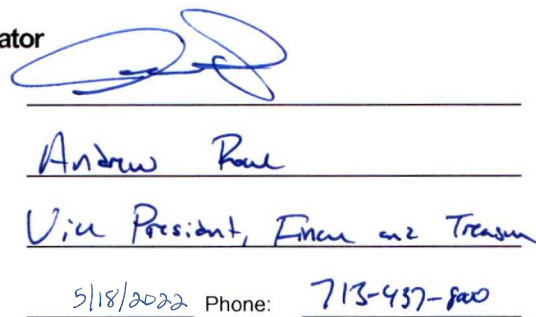 ator
Andrew
Vice President, Finance and Treasurer
5/18/2022 Phone: 713-437-8000